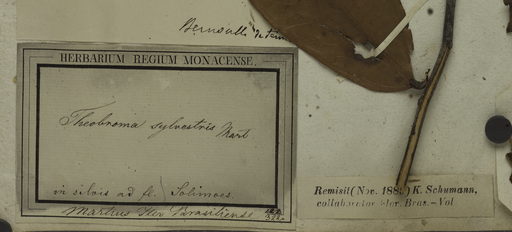 Bernoulli
HERBARIUM REGIUM MONACENSE.
Theobroma sylvestris Mart
in silvis ad fl. Solimoes
Martius Iter Brasiliense
Remisit (Nov. 188 ) K. Schumann,
collaborator Flor. Bras. - Vol